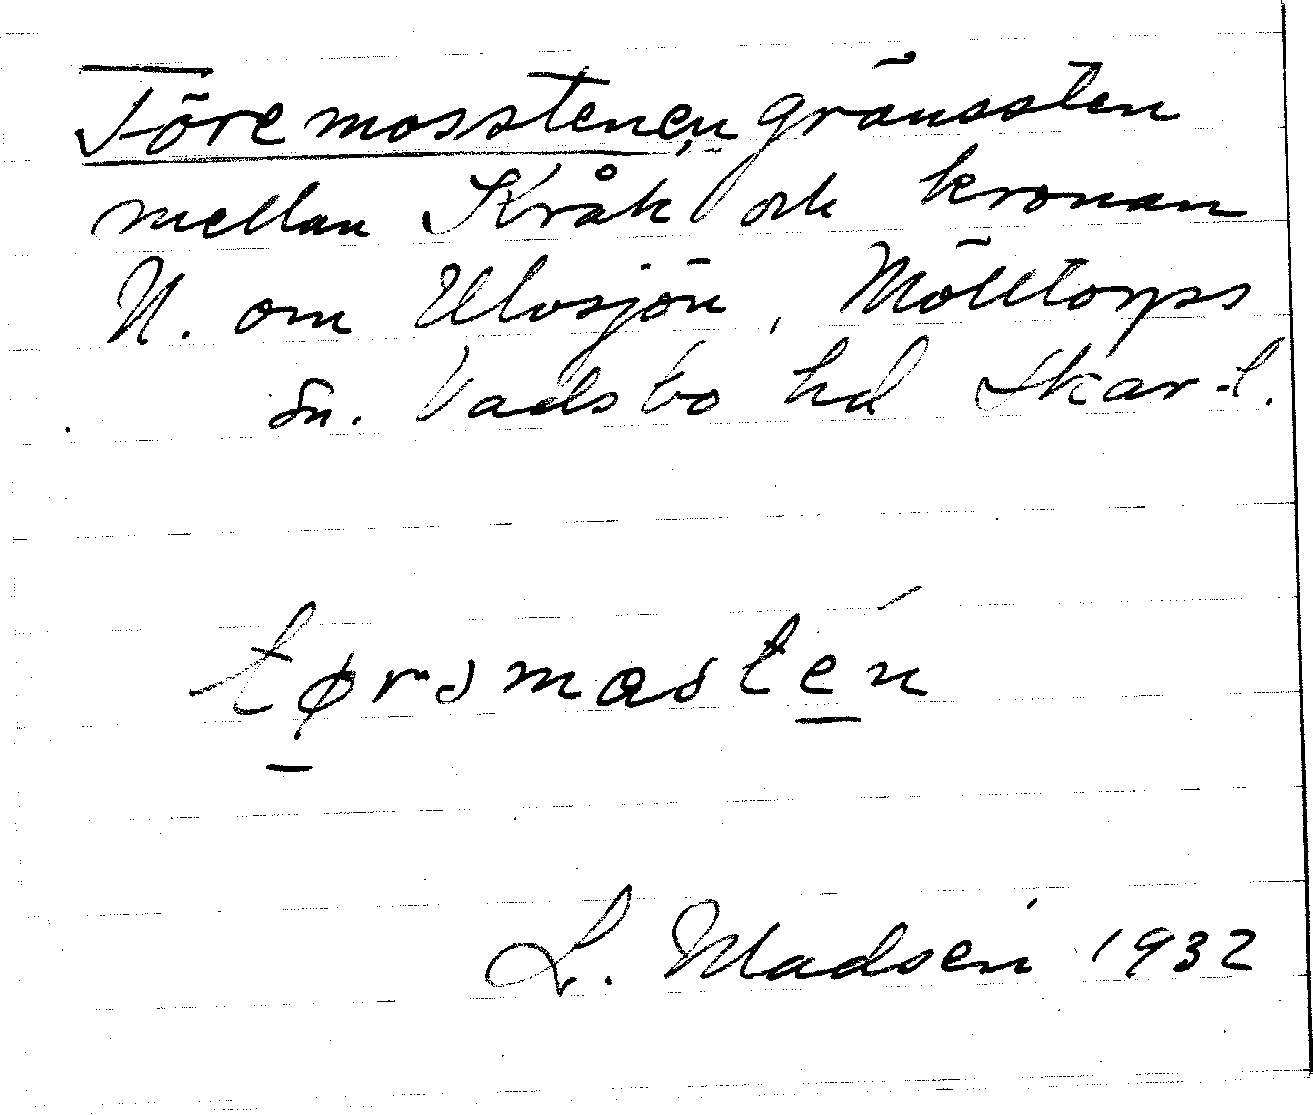 Töremosstenen, gränssten
mellan Kråk och kronan
N. om Ulvsjön, Mölltorps
sn. Vadsbo hd Skar.l.
tørɔmɑstén
L. Madsén 1932